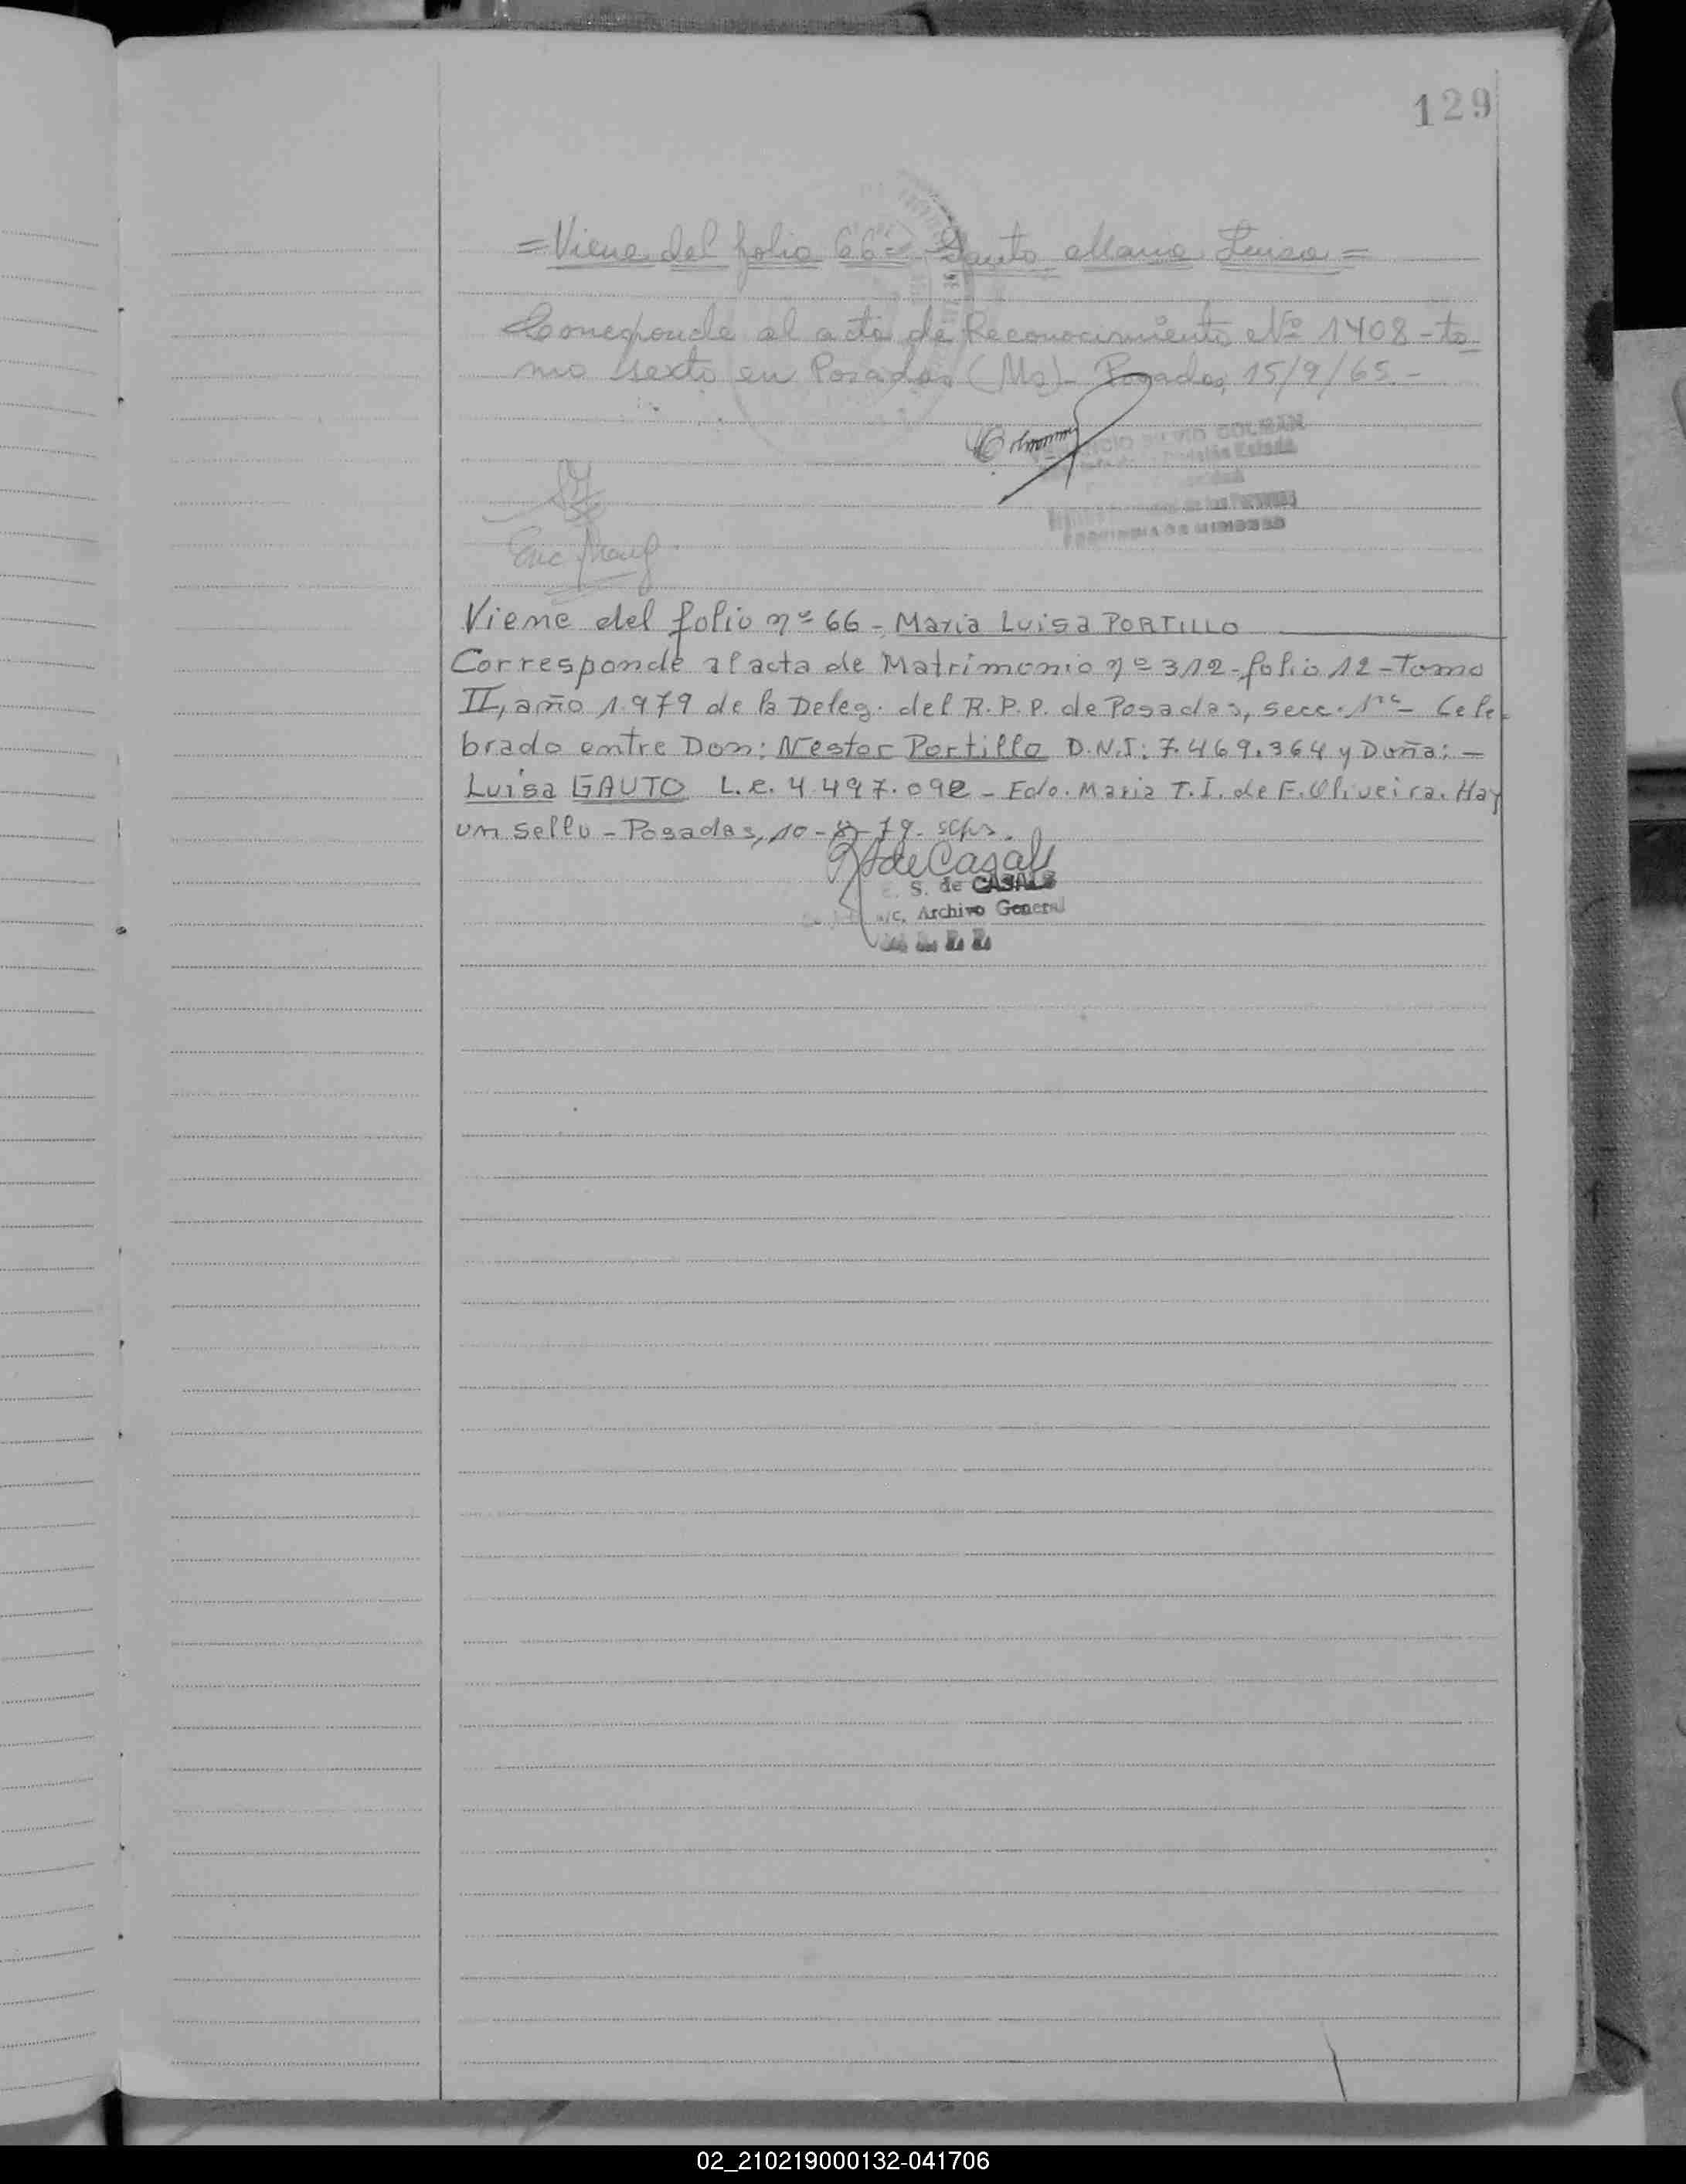 129
= Viene del folio 66 = Gauto Maria Luisa =
Corresponde al acta de Reconocimiento Nº 1408 - to
mo sexto en Posadas (Ms) - Posadas, 15/9/65. -
COLMAN
PROVINCIA DE MISIONES
Viene del folio nº 66 - Maria Luisa PORTILLO
Corresponde al acta de Matrimonio nº 312 - folio 12 - Tomo
II, año 1.979 de la Deleg. del R.P.P. de Posadas, secc. 1ra - Cele
brado entre Don: Nestor Portillo D.N.I: 7.469.364 y Doña: -
Luisa GAUTO L.C. 4.497.092 - Fdo. Maria T. I. de F. Oliveira. Hay
un sello - Posadas, 10-8-79.
de Casals
S. de CASALS
a/c. Archivo General
02_210219000132-041706